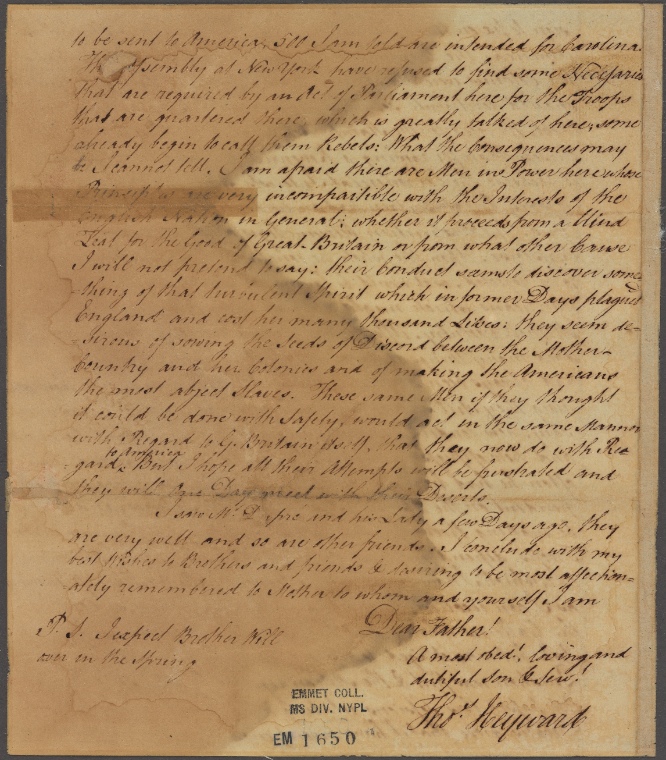 to be sent to America, 500 I am told are intended for Carolina.
The Assembly at New York have refused to find some Necessaries
that are required by an Act of Parliament here for the Troops
that are quartered there, which is greatly talked of here, some
already begin to call them Rebels: What the Consequences may
be I cannot tell. I am afraid there are Men in Power here whose
Principles are very incompaitible with the Interests of the
English Nation in General: whether it proceeds from a blind
Zeal for the Good of Great-Britain or from what other Cause
I will not pretend to say: their Conduct seams to discover some-
-thing of that turbulent Spirit which in former Days plagued
England and cost her many thousand Lives: they seem de-
-sirous of sowing the Seeds of Discord between the Mother-
Country and her Colonies and of making the Americans
the most abject Slaves. These same Men if they thought
it could be done with Safety, would act in the same Manner
with Regard to G. Britain itself that they now do with Re-
to America
-gard. But I hope all their Attempts will be frustrated and
they will one Day meet with their Deserts.
I saw Mr. and his Lady a few Days ago, they
are very well and so are other friends. I conclude with my
best Wishes to Brothers and friends & desiring to be most affection-
-ately remembered to Mother to whom and yourself I am
Dear Father!
P. S. I expect Brother Will
A most obed.t loving and
over in the Spring
dutiful son & Serv.t
Tho.s Heyward
EMMET COLL.
MS DIV. NYPL
EM 1650